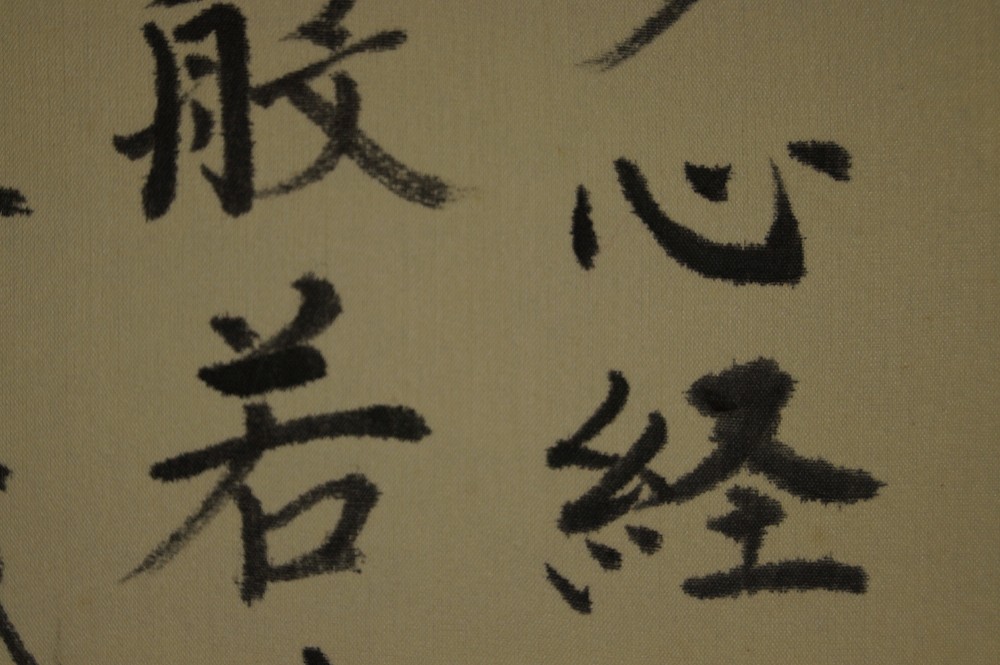 心経
般若